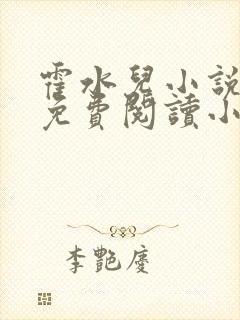 霍水兒小說
免費閱讀小
李艷慶